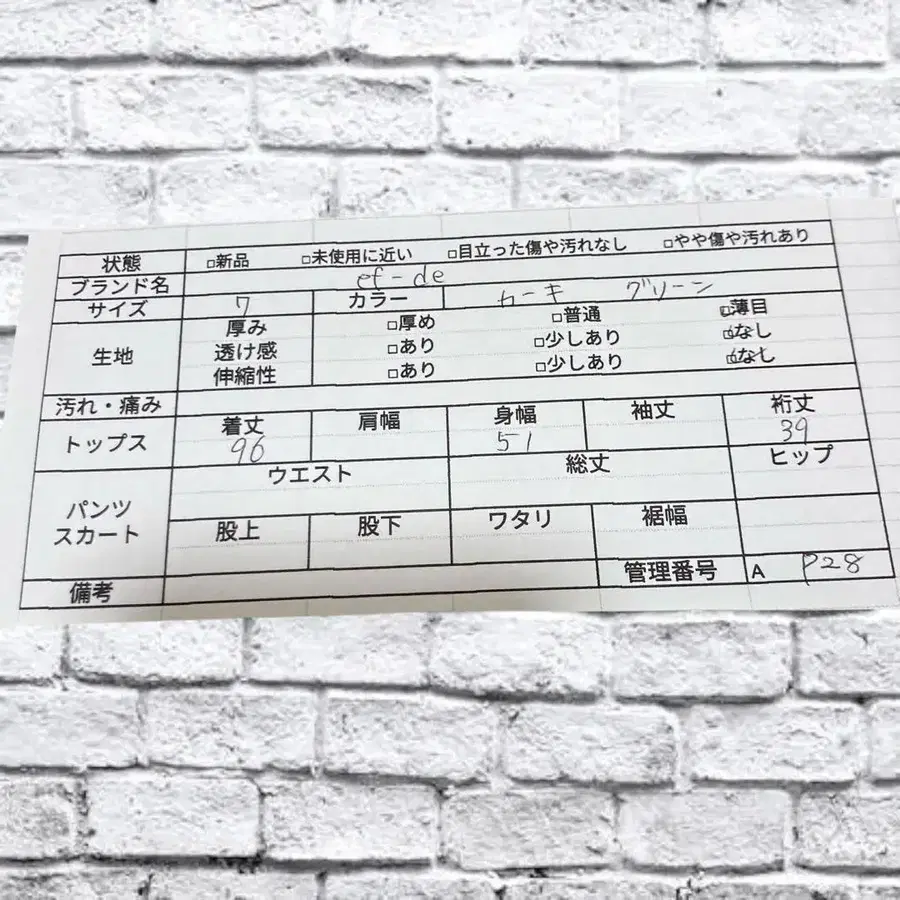 状態 □新品 □未使用に近い □目立った傷や汚れなし □やや傷や汚れあり
ブランド名 ef-de
サイズ 7 カラー カーキ グリーン
生地 厚み □厚め □普通 ☑薄目
透け感 □あり □少しあり ☑なし
伸縮性 □あり □少しあり ☑なし
汚れ・痛み
トップス 着丈 肩幅 身幅 袖丈 裄丈
96 51 39
パンツ スカート ウエスト 総丈 ヒップ
股上 股下 ワタリ 裾幅
備考 管理番号 A P28